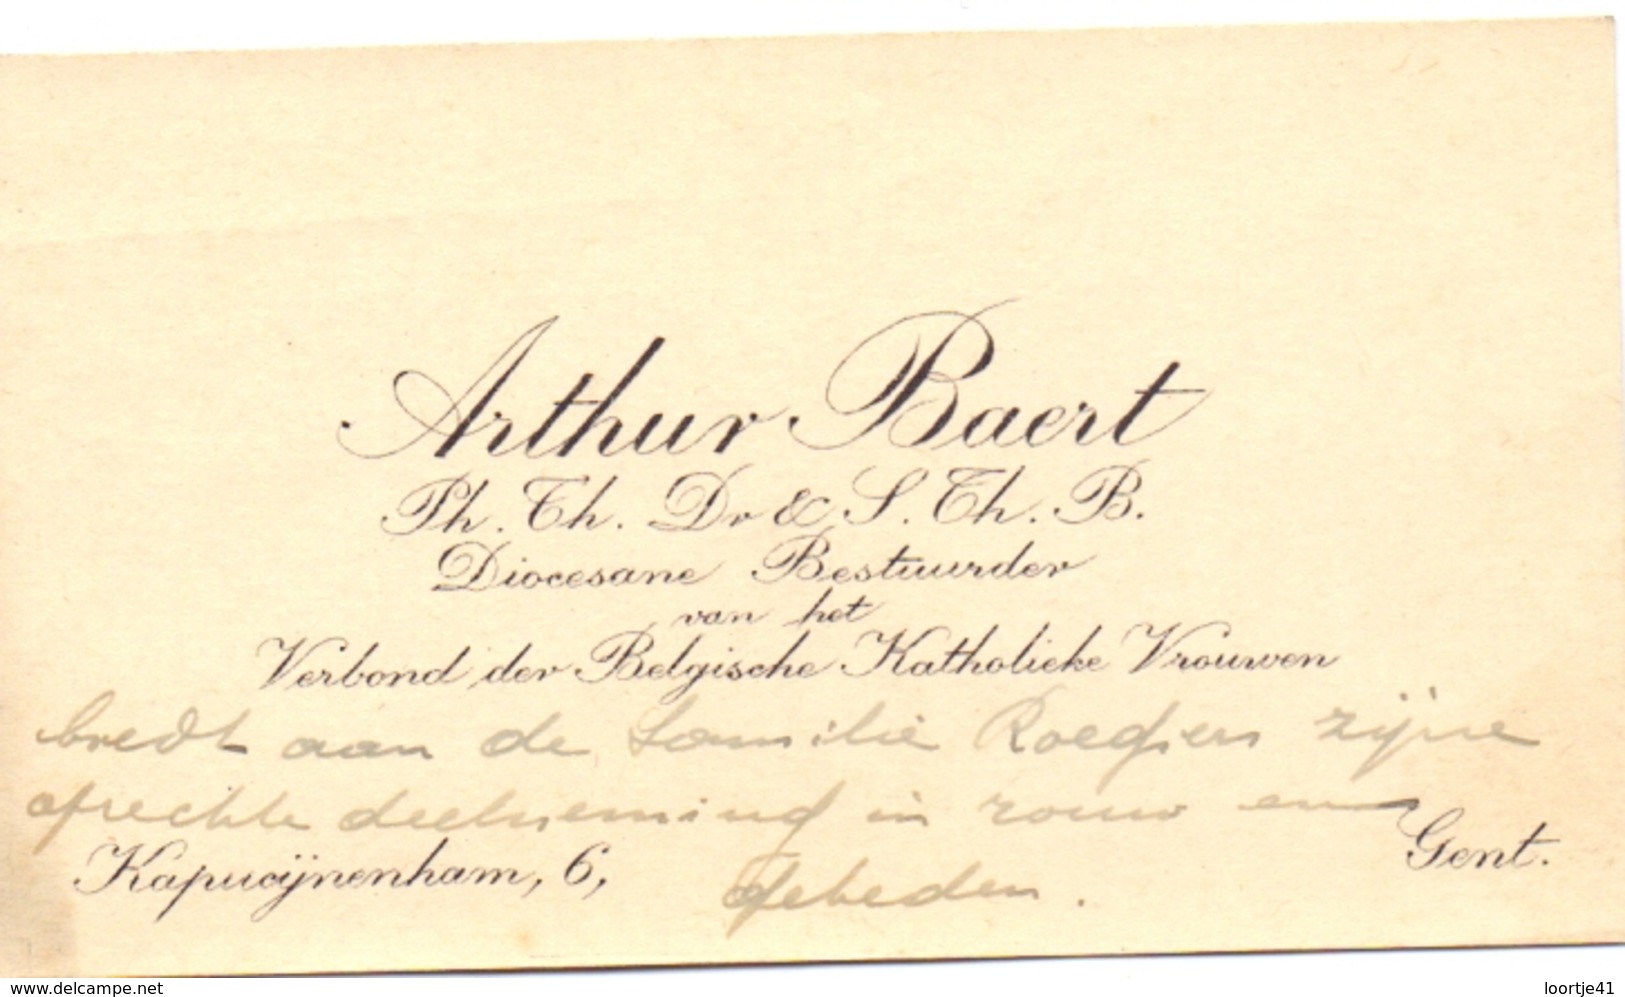 Arthur Baert
Ph. Th. Dr & S. Th. B.
Diocesane Bestuurder
van het
Verbond der Belgische Katholieke Vrouwen
biedt aan de familie Roegiers zijne
oprechte deelneming in rouw en
Kapucijnenham, 6, Gent.
gebeden.
www.delcampe.net loortje41